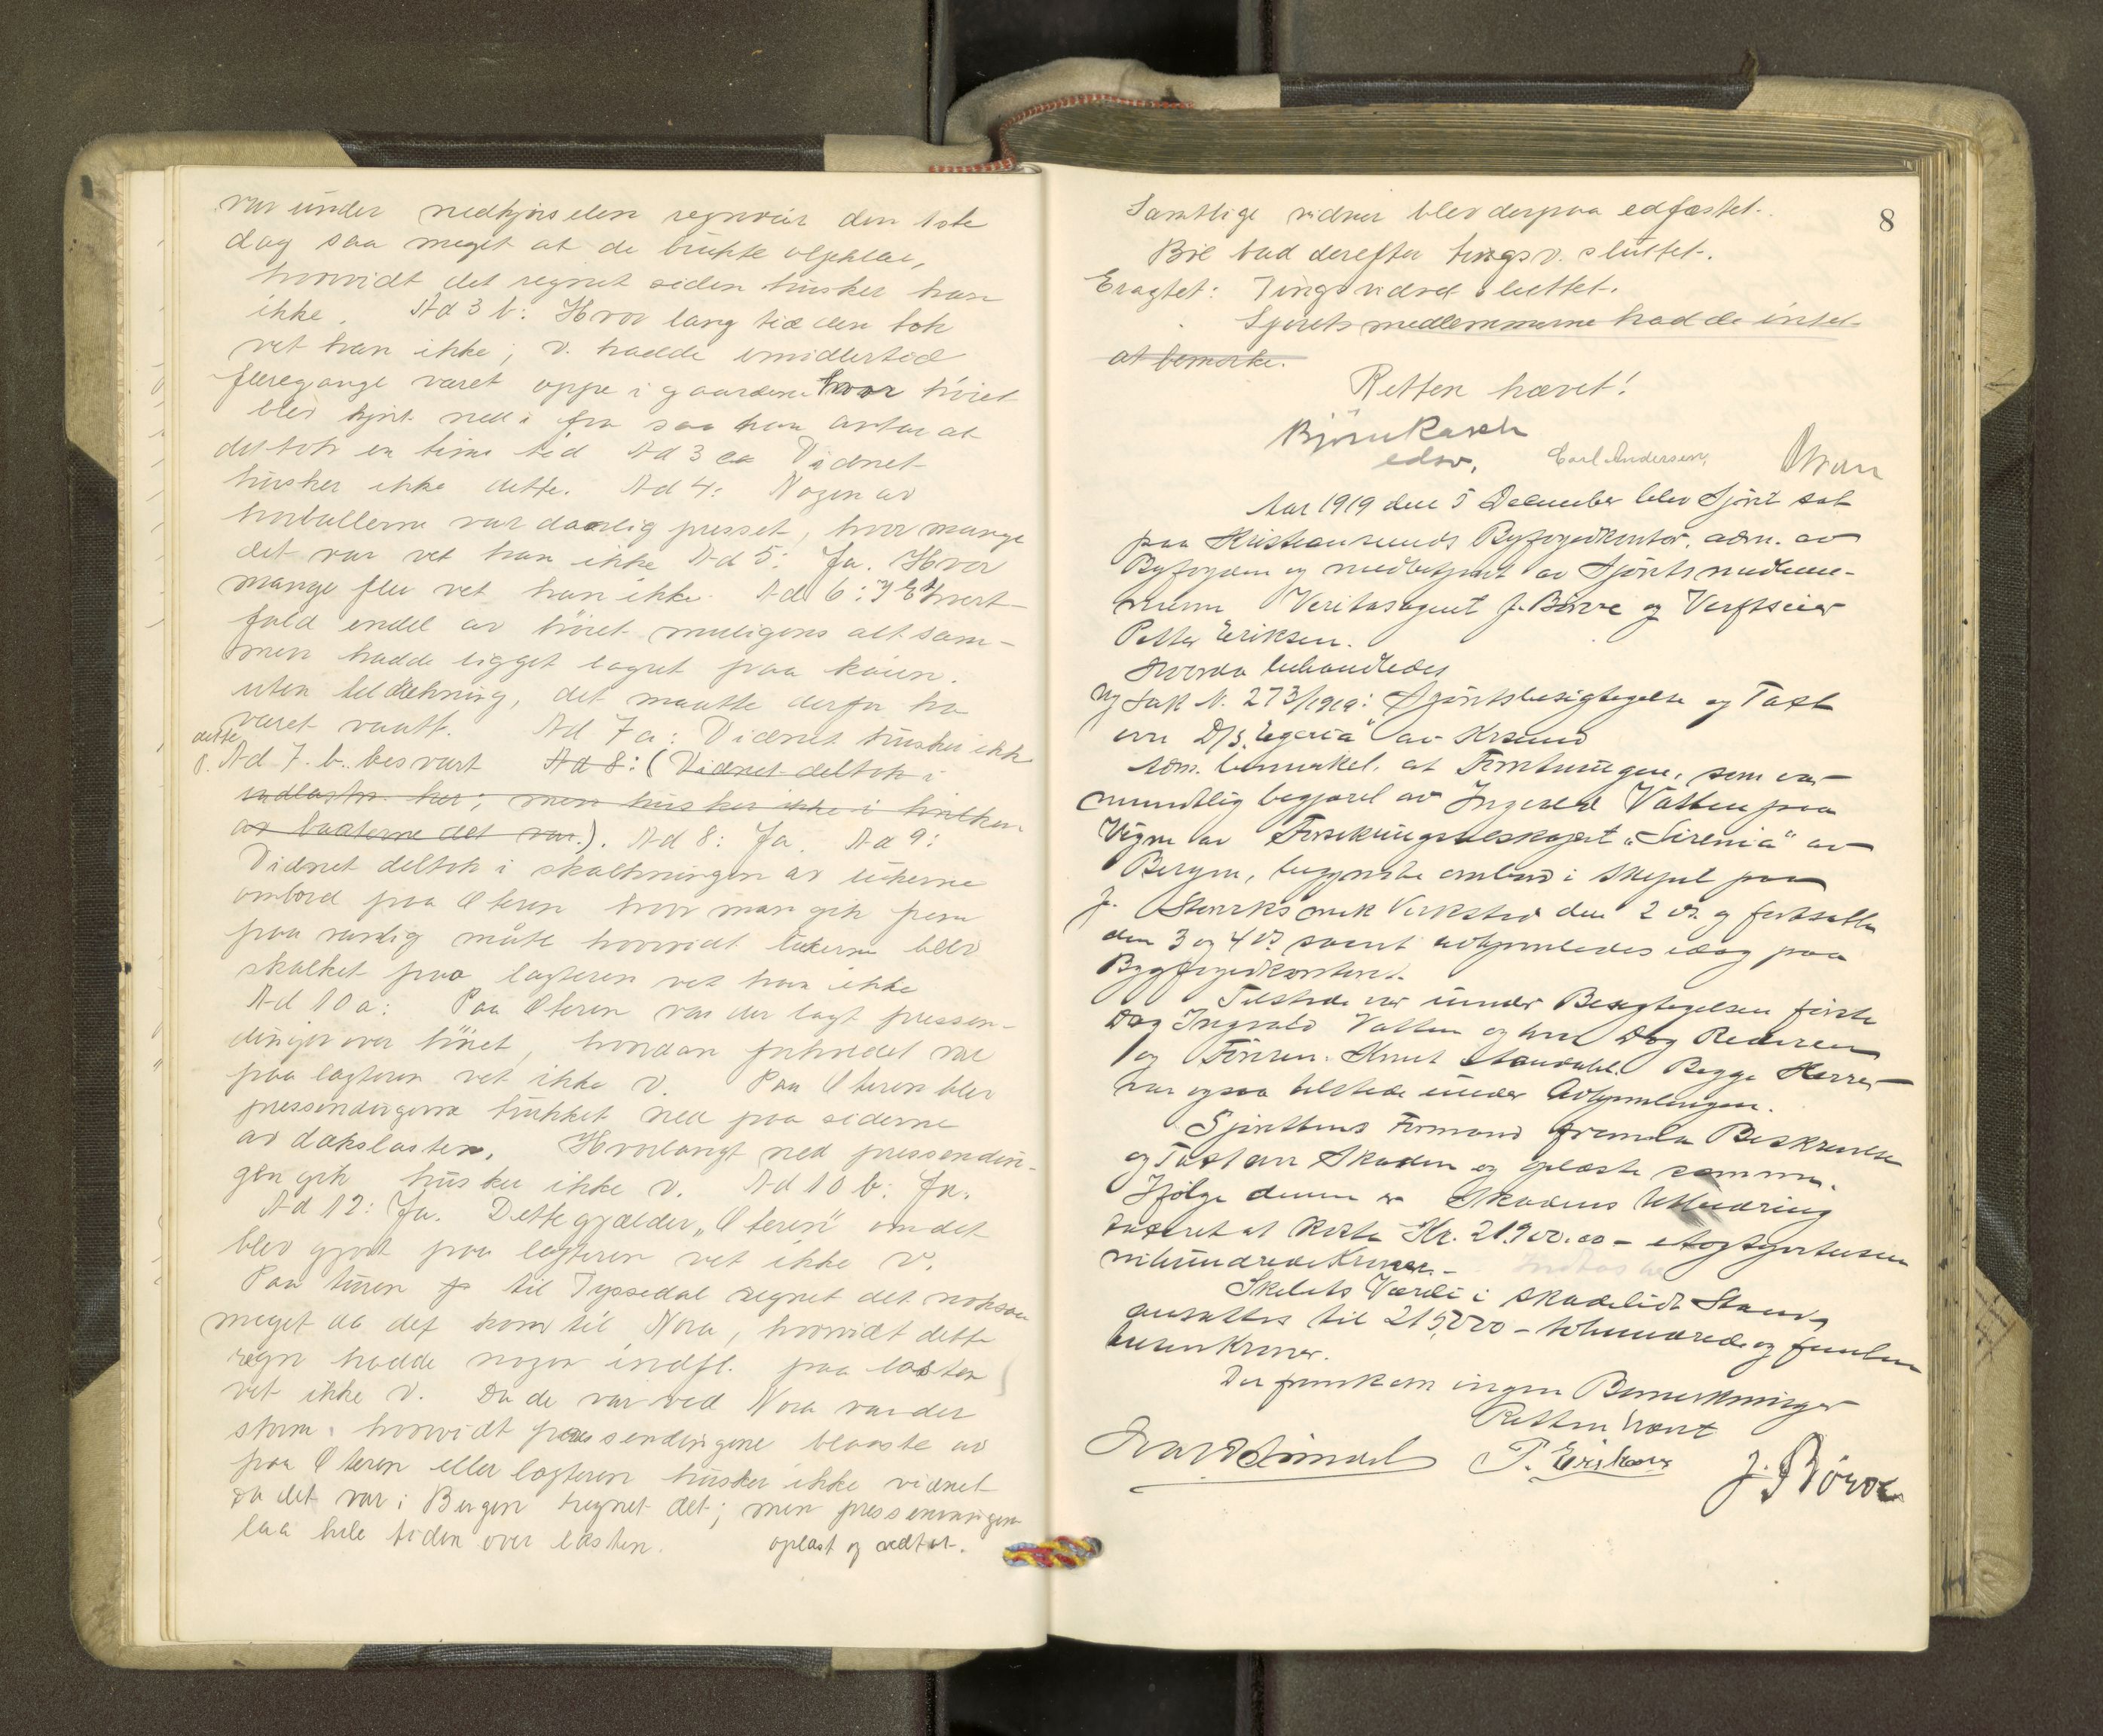 var under nedkjörselen regnveir den 1ste
dag saa meget at de brukte oljeklær,
hvorvidt det regnet siden husker han
ikke. Ad 3 b: Hvor lang tid den tok
vet han ikke; v. hadde imidlertid
fleregange været oppe i gaardene hvor höiet
blev kjört ned i fra saa han antar at
det tok en times tid Ad 3 Vidnet
husker ikke dette. Ad 4: Nogen av
höiballerne var daarlig presset, hvor mange
det var vet han ikke Ad 5: Ja. Hvor
mange fler vet han ikke. Ad 6: I hvert
fald endel av höiet muligens altsam-
men hadde ligget lagret paa kaien
uten tildækning, det maatte derfor ha
været vaatt. Ad 7 a: Vidnet husker ikke
dette
Ad 7. b. besvart Ad 8: (Vidnet deltok i
indlastn. her; men husker ikke i hvilken
av baaterne det var.). Ad 8: Ja. Ad 9:
Vidnet deltok i skalkningen av lukerne
ombord paa Oteren hvor man gik frem
paa vanlig måte hvorvidt lukerne blev
skalket paa lægteren vet han ikke
Ad 10 a: Paa Oteren var der lagt pressen-
dinger over höiet, hvordan forholdet var
paa lægteren vet ikke v. Paa Oteren blev
pressendingerne trukket ned paa siderne
av dækslasten. Hvorlangt ned pressendin-
gen gik husker ikke v. Ad 10 b: Ja.
Ad 12: Ja. Dette gjælder "Oteren" om det
blev gjort paa lægteren vet ikke v.
Paa turen til Tyssedal regnet det noksaa
meget da det kom til Nora, hvorvidt dette
regn hadde nogen indfl. paa lasten
vet ikke v. Da de var ved Nora var der
storm. hvorvidt pressendingene blaaste av
paa Oteren eller lægteren husker ikke vidnet
Da det var i Bergen regnet det; men pressenningen
laa hele tiden over lasten. oplæst og vedtat.
8
Samtlige vidner blev derpaa edfæstet.
Bie bad derefter tingsv. sluttet.
Eragtet: Tingsvidnet sluttet.
Sjöretsmedlemmerne hadde intet
at bemerke.
Retten hævet!
Björn Rasch
edsv. Carl Andersen,
Aar 1919 den 5 December blev Sjöret sat
paa Kristiansunds Byfogedkontor, adm. av
Byfogden og medbetjent av Sjöretsmedlem-
merne Veritasagent J. Börve og Verftseier
Petter Eriksen.
Hvorda behandledes
Ny Sak N. 273/1919: Sjöretsbesigtigelse og Taxt
over D/S. "Egeria" av Krsund
Adm. bemerket, at Forretningen, som var
mundtlig begjæret av Ingvald Vatten paa
Vegne av Forsikringsselskapet "Sirenia" av
Bergen, begyndte ombord i Skipet paa
J. Storviks mek Verksted den 2 ds. og fortsatte
den 3 og 4 ds samt avhjemledes idag paa
Byfogedkontoret.
Tilstede var under Besigtigelsen förste
Dag Ingvald Vatten og hver Dag Rederen
og Föreren Knut . Begge Herrer
var ogsaa tilstede under Avhjemlingen.
Sjörettens Formand fremla Beskrivelse
og Taxt over Skaden og oplæste samme.
Ifölge denne er Skadens Utbedring
taxeret at koste Kr. 21.900.00 - etogtyvetusen
nihundrede Kroner. -
Skibets Værdi i skadelidt Stand
ansattes til 215,000 - tohundrede og femten
tusen Kroner.
Der fremkom ingen Bemerkninger
Retten hævet
P. Eriksen J. Börve